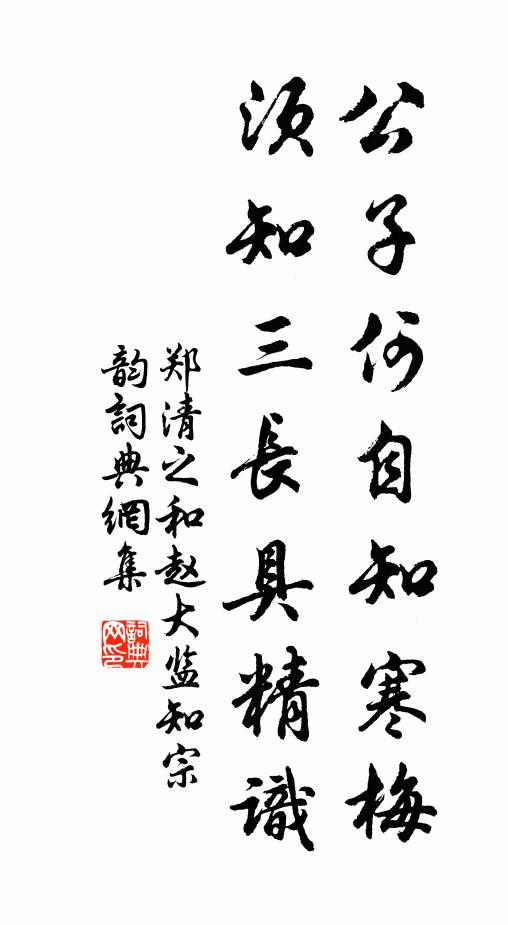 公子何自知寒梅
須知三長具精識
郑清之和赵大监知宗
韵詞典網集
詞典网印